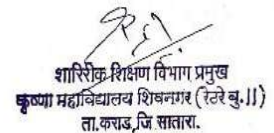 शारिरीक शिक्षण विभाग प्रमुख
कृष्णा महाविद्यालय शिवनगर (रेठरे बु.।।)
ता.कराड, जि सातारा.